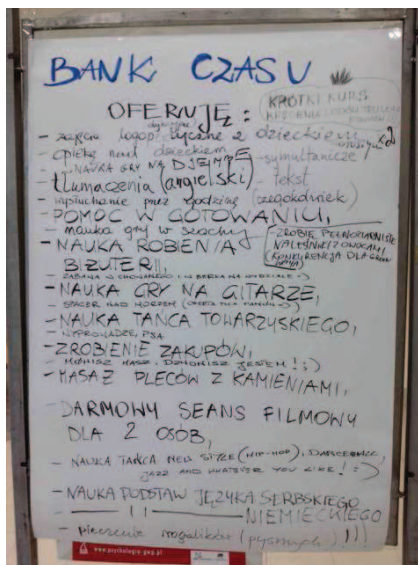 BANK CZASU
OFERUJĘ:
KRÓTKI KURS
- zajęcia logopedyczne z dzieckiem
- opiekę nad dzieckiem
- NAUKA GRY NA DJEMBE
- tłumaczenia (angielski)
symultanicze
tekst
- wysłuchanie przez godzinę (zegokolwiek)
- POMOC W GOTOWANIU,
- nauka gry w szachy
- ZROBIĘ PEŁNOZIARNISTE
NALEŚNIKI Z OWOCAMI
(KONKURENCJA DLA
- NAUKA ROBIENIA
BIŻUTERII,
- ZABAWA W CHOWANEGO I W BERKA NA WYDZIALE :)
- NAUKA GRY NA GITARZE,
- SPACER NAD MORZEM
- NAUKA TAŃCA TOWARZYSKIEGO,
- WYPROWADZĘ PSA
- ZROBIENIE ZAKUPÓW,
- MÓWISZ MASZ, DŻINORIS JESTEM! ;)
- MASAŻ PLECÓW Z KAMIENIAMI,
- DARMOWY SEANS FILMOWY
DLA 2 OSÓB,
- NAUKA TAŃCA NEW STYLE (HIP-HOP), DANCEHALL,
JAZZ AND WHATEVER YOU LIKE! :)
- NAUKA PODSTAW JĘZYKA SERBSKIEGO
- —— || —— NIEMIECKIEGO
- pieczenie rogalików (pysznych) !!!
www.psychologia-gwp.pl